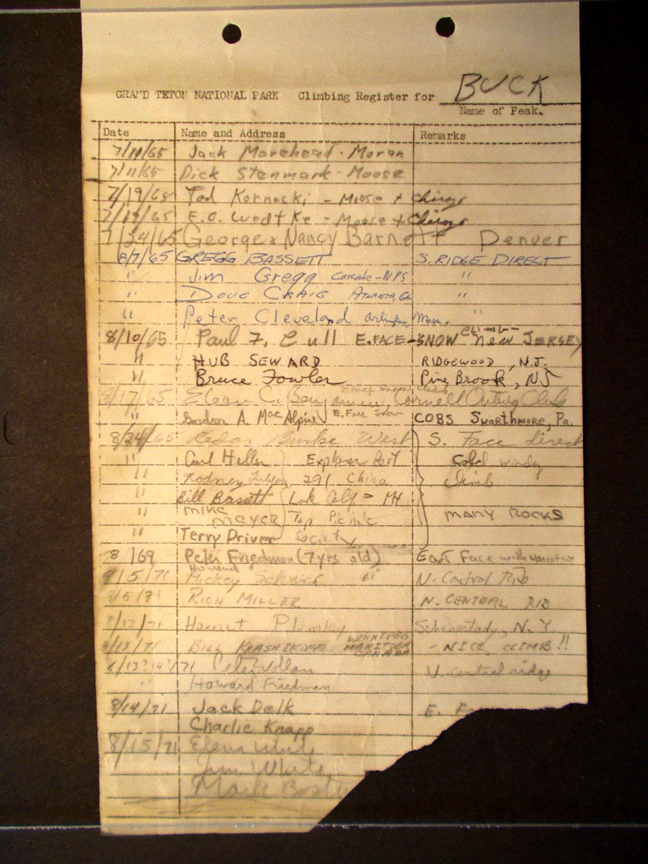 BUCK
GRAND TETON NATIONAL PARK Climbing Register for
Name of Peak.
Date Name and Address Remarks
7/11/65 Jack Morehead - Moran
7/11/65 Dick Stenmark - Moose
7/19/65 Ted Kornacki - Moose +
7/19/65 E.O. Wedtke - Moose +
7/24/65 George & Nancy Barnett Denver
8/7/65 GREGG BASSETT S. RIDGE DIRECT
" Jim Gregg Cascade - NPS "
" DOUG CRAIG Atlanta, Ga "
" Peter Cleveland Arlington, Mass.
8/10/65 Paul F. Cull E. FACE - SNOW climb - New JERSEY
" HUB SEWARD RIDGEWOOD, N.J.
" Bruce Fowler Pine Brook, NJ
8/17/65 Cornell Outing Club
" Gordon A. MacAlpine E. Face Snow COBS Swarthmore, Pa.
8/24/65 West S. face direct
" Carl Heller Explorer Post Cold windy
" Rodney 291 China climb
" Bill Bassett Lake
" MIKE MEYER Top Picnic MANY ROCKS
" Terry Driver Society
8/69 Peter Friedman (7 yrs old) East Face with
/5/71 Mickey " N. Central Rib
RICH MILLER N. CENTRAL RIB
/12/71 Harriet Plumley Schenectady, N.Y
/13/71 BILL WINNIPEG MANITOBA CANADA - NICE CLIMB!!
central ridge
" Howard Friedman
8/14/71 Jack Delk E.
Charlie Knapp
8/15/71 Elena White
Jim White
Mark